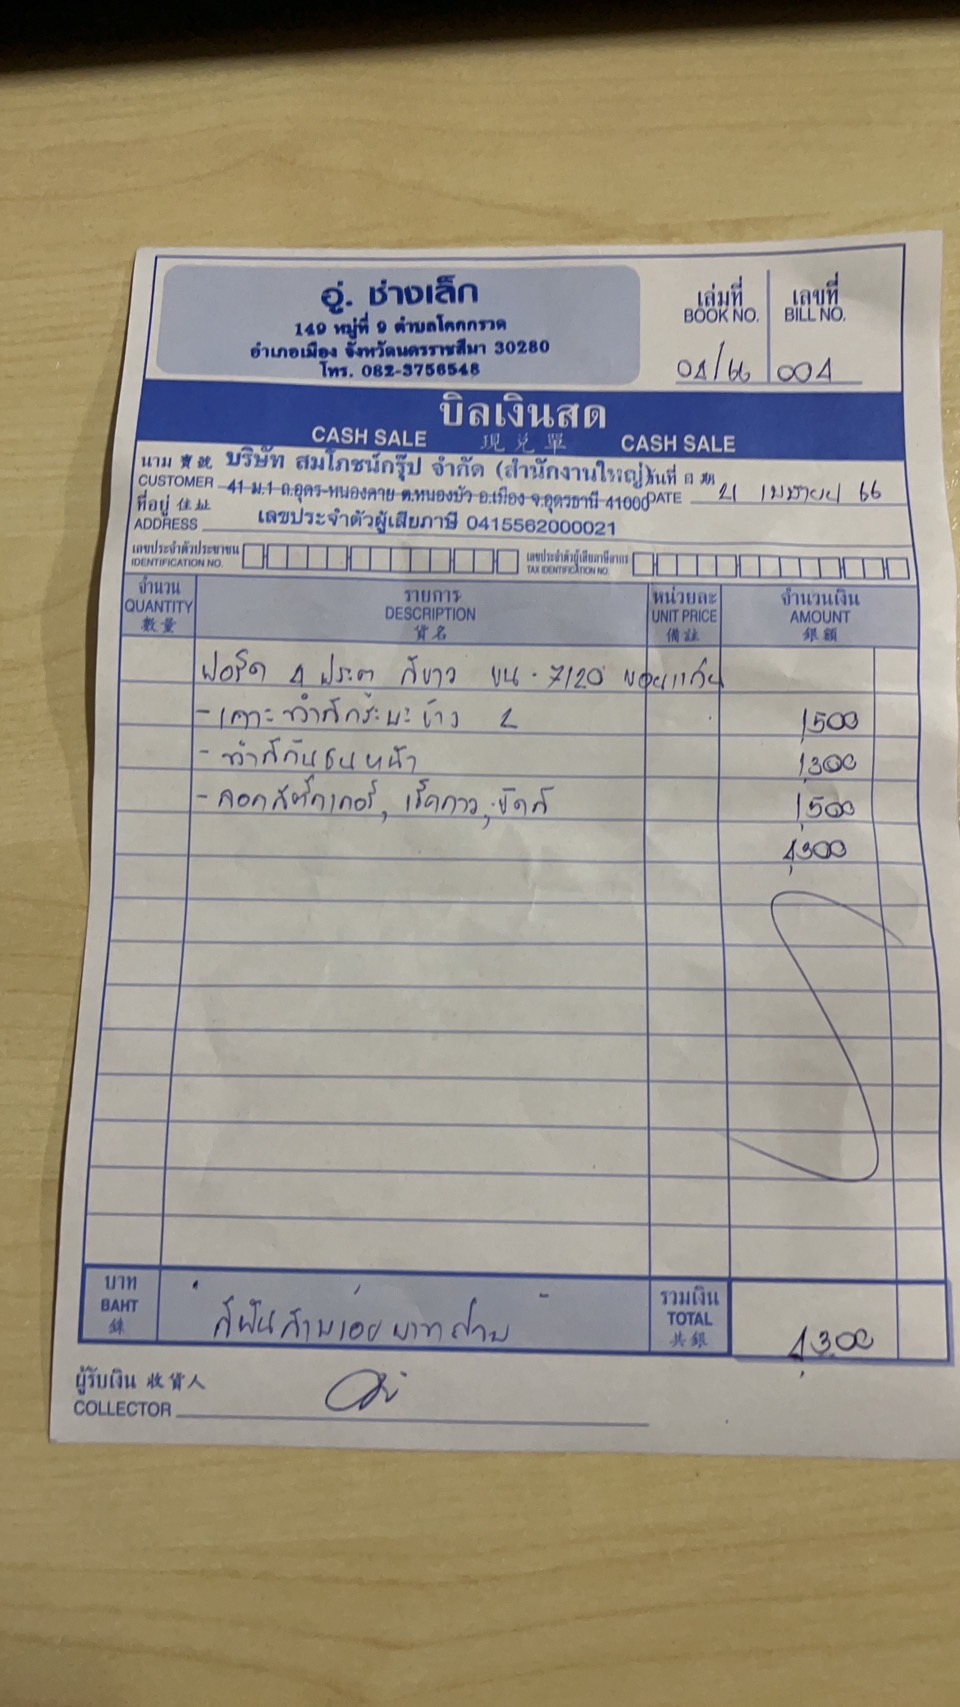 อู่. ช่างเล็ก
149 หมู่ที่ 9 ตำบลโคกกรวด
อำเภอเมือง จังหวัดนครราชสีมา 30280
โทร. 082-3756548
เล่มที่ เลขที่
BOOK NO. BILL NO.
04/66 004
บิลเงินสด
CASH SALE 現兌單 CASH SALE
นาม 寶號 บริษัท สมโภชน์กรุ๊ป จำกัด (สำนักงานใหญ่) วันที่ 日期
CUSTOMER 41 ม.1 ถ.อุดร-หนองคาย ต.หนองบัว อ.เมือง จ.อุดรธานี 41000 DATE 21 เมษายน 66
ที่อยู่ 住址
ADDRESS เลขประจำตัวผู้เสียภาษี 0415562000021
เลขประจำตัวประชาชน เลขประจำตัวผู้เสียภาษีอากร
IDENTIFICATION NO. TAX IDENTIFICATION NO.
จำนวน รายการ หน่วยละ จำนวนเงิน
QUANTITY DESCRIPTION UNIT PRICE AMOUNT
數量 貨名 備註 銀額
ฟอร์ด 4 ประตู สีขาว ขน.7120 ขอนแก่น
- เคาะ ทำสีกระบะข้าง 2 1,500
- ทำสีกันชนหน้า 1,300
- ลอกสติ๊กเกอร์, เช็ดกาว, ขัดสี 1,500
4,300
บาท รวมเงิน
BAHT สี่พันสามร้อยบาทถ้วน TOTAL 4,300
銖 共銀
ผู้รับเงิน 收貨人
COLLECTOR